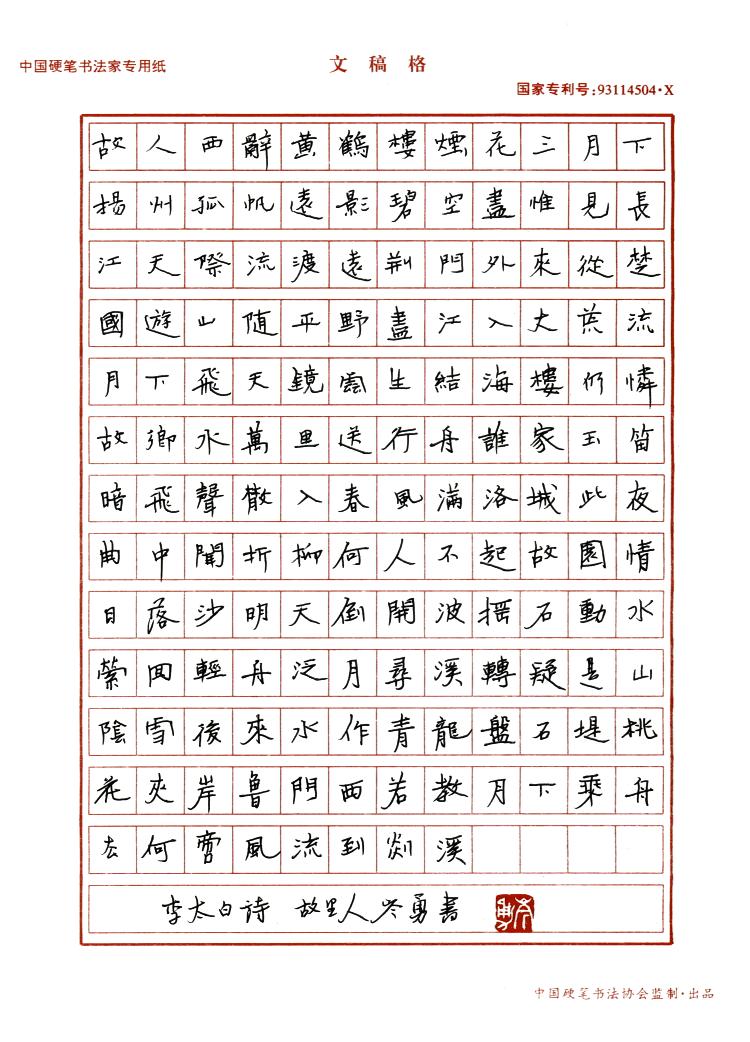 中国硬笔书法家专用纸
文稿格
国家专利号:93114504·X
故人西辭黃鶴樓煙花三月下
揚州孤帆遠影碧空盡惟見長
江天際流渡遠荆門外來從楚
國遊山随平野盡江入大荒流
月下飛天鏡雲生結海樓仍憐
故鄉水萬里送行舟誰家玉笛
暗飛聲散入春風滿洛城此夜
曲中聞折柳何人不起故園情
日落沙明天倒開波摇石動水
縈回輕舟泛月尋溪轉疑是山
陰雪後來水作青龍盤石堤桃
花夾岸魯門西若教月下乘舟
去何啻風流到剡溪
李太白诗 故里人岑勇書
中国硬笔书法协会监制·出品